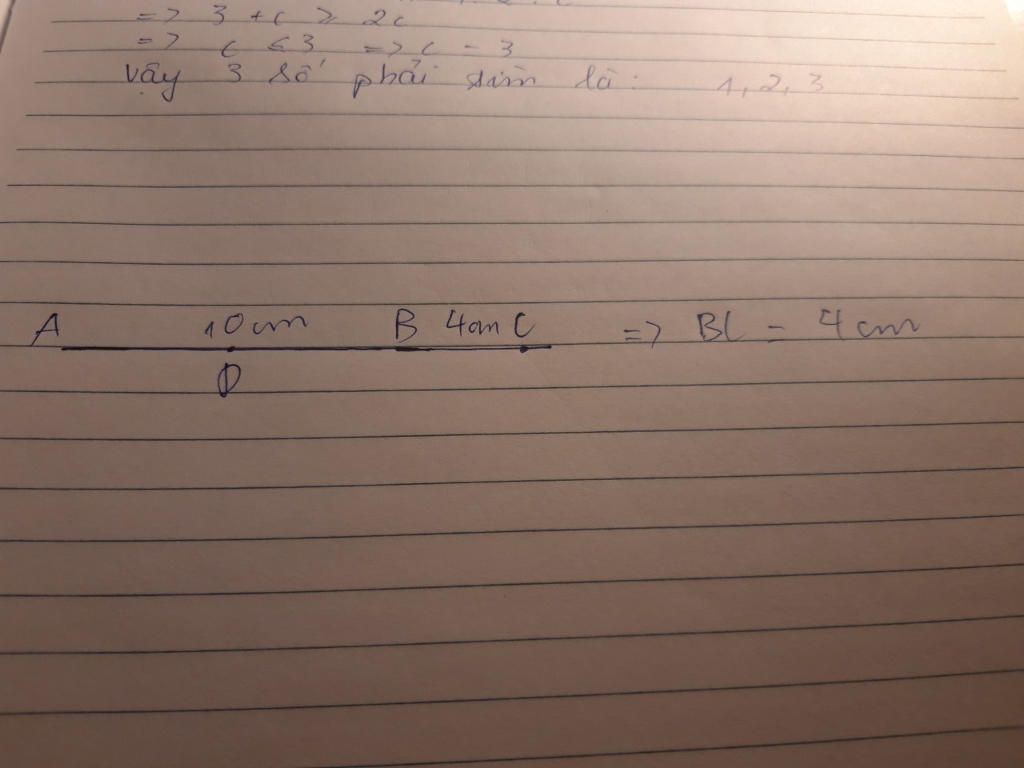 => 3 + c ≥ 2c
=> c ≤ 3 => c = 3
vậy 3 số phải tìm là: 1, 2, 3
A 10cm B 4cm C => BC = 4cm
D